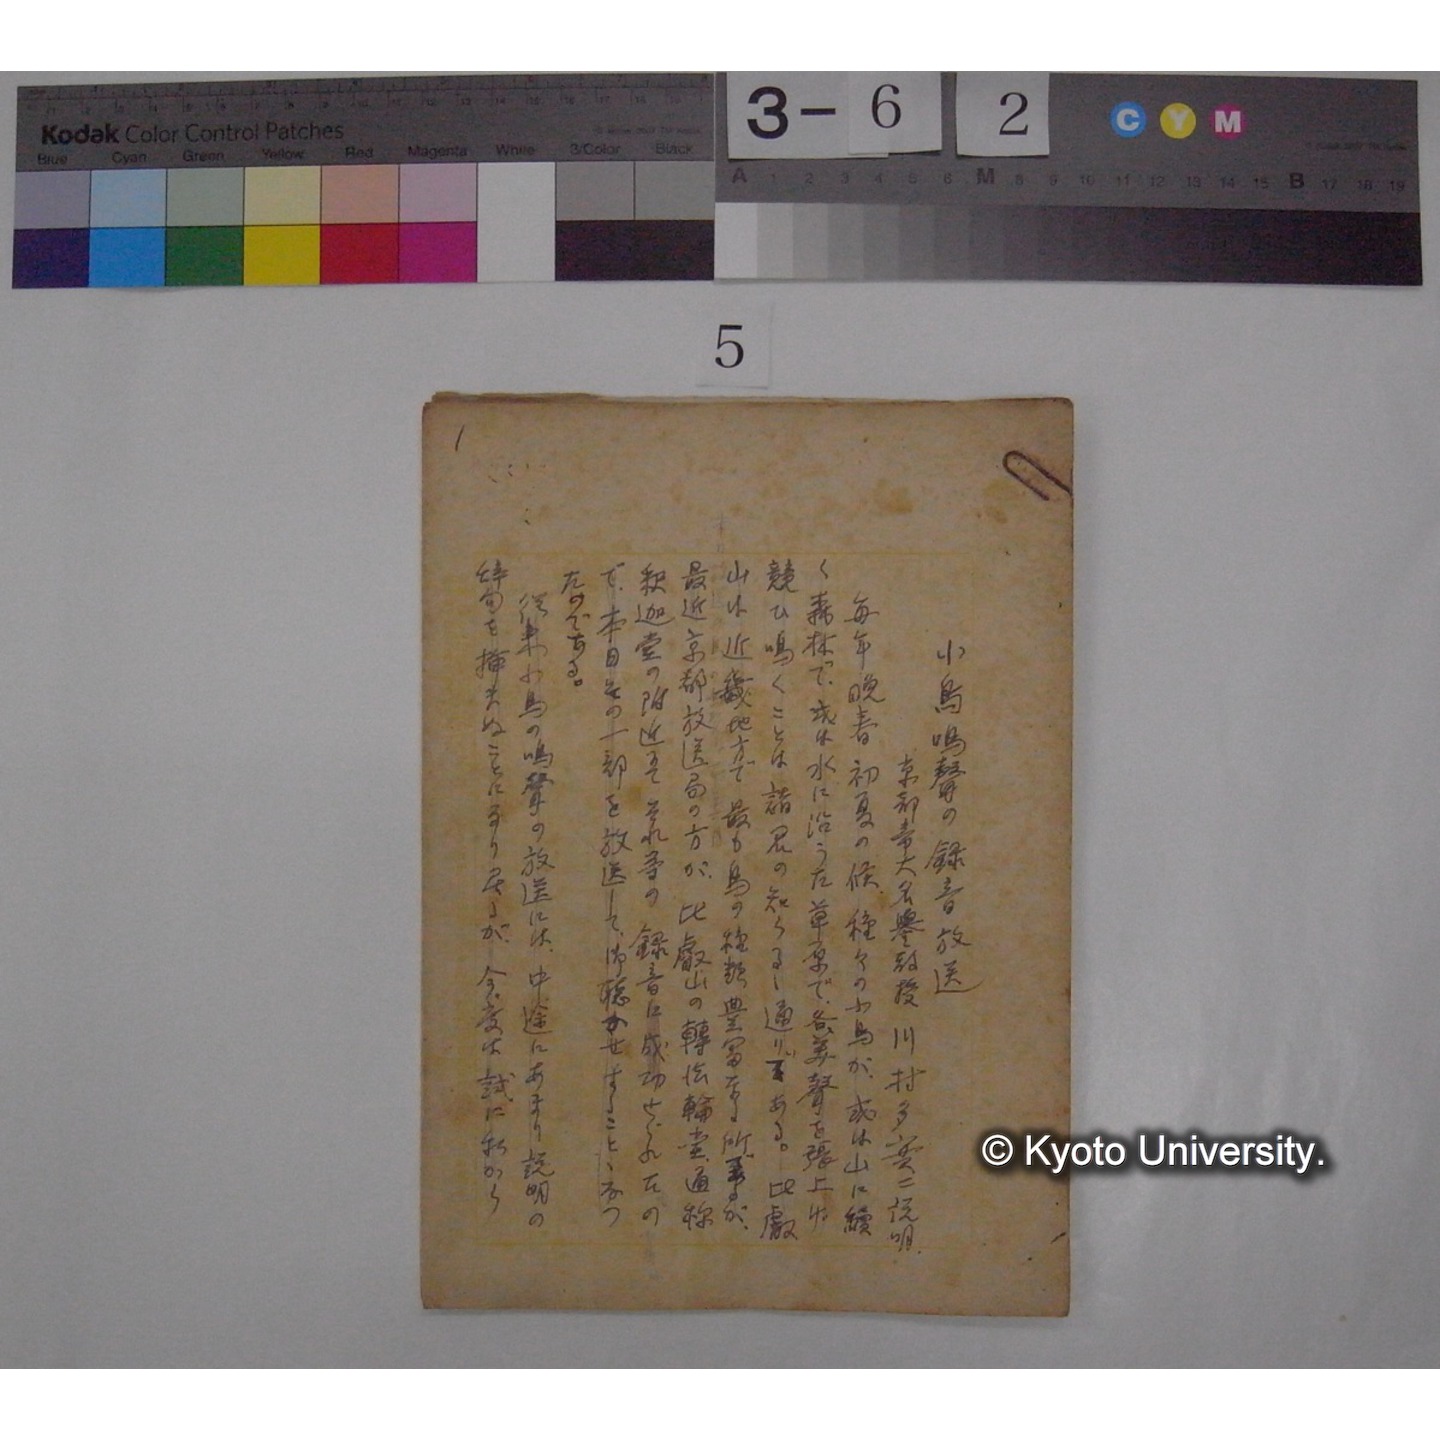 Kodak Color Control Patches
Blue Cyan Green Yellow Red Magenta White 3/Color Black
3-6 2
C Y M
A 1 2 3 4 5 6 M 8 9 10 11 12 13 14 15 B 17 18 19
5
1
小鳥鳴聲の録音放送
京都帝大名譽教授 川村多實二説明
毎年晩春初夏の候、種々の小鳥が、或は山に續
く森林で、或は水に沿うた草原で、各美聲を張上げ
競ひ鳴くことは諸君の知らるゝ通りである。比叡
山は近畿地方で最も鳥の種類豊富なる所であるが、
最近京都放送局の方が、比叡山の轉法輪堂、通称
釈迦堂の附近でそれ等の録音に成功せられたの
で、本日その一部を放送して、御聴かせすることゝなつ
たのである。
従来小鳥の鳴聲の放送には、中途にあまり説明の
辞句を挿まぬことになり居るが、今度は試に私から
© Kyoto University.